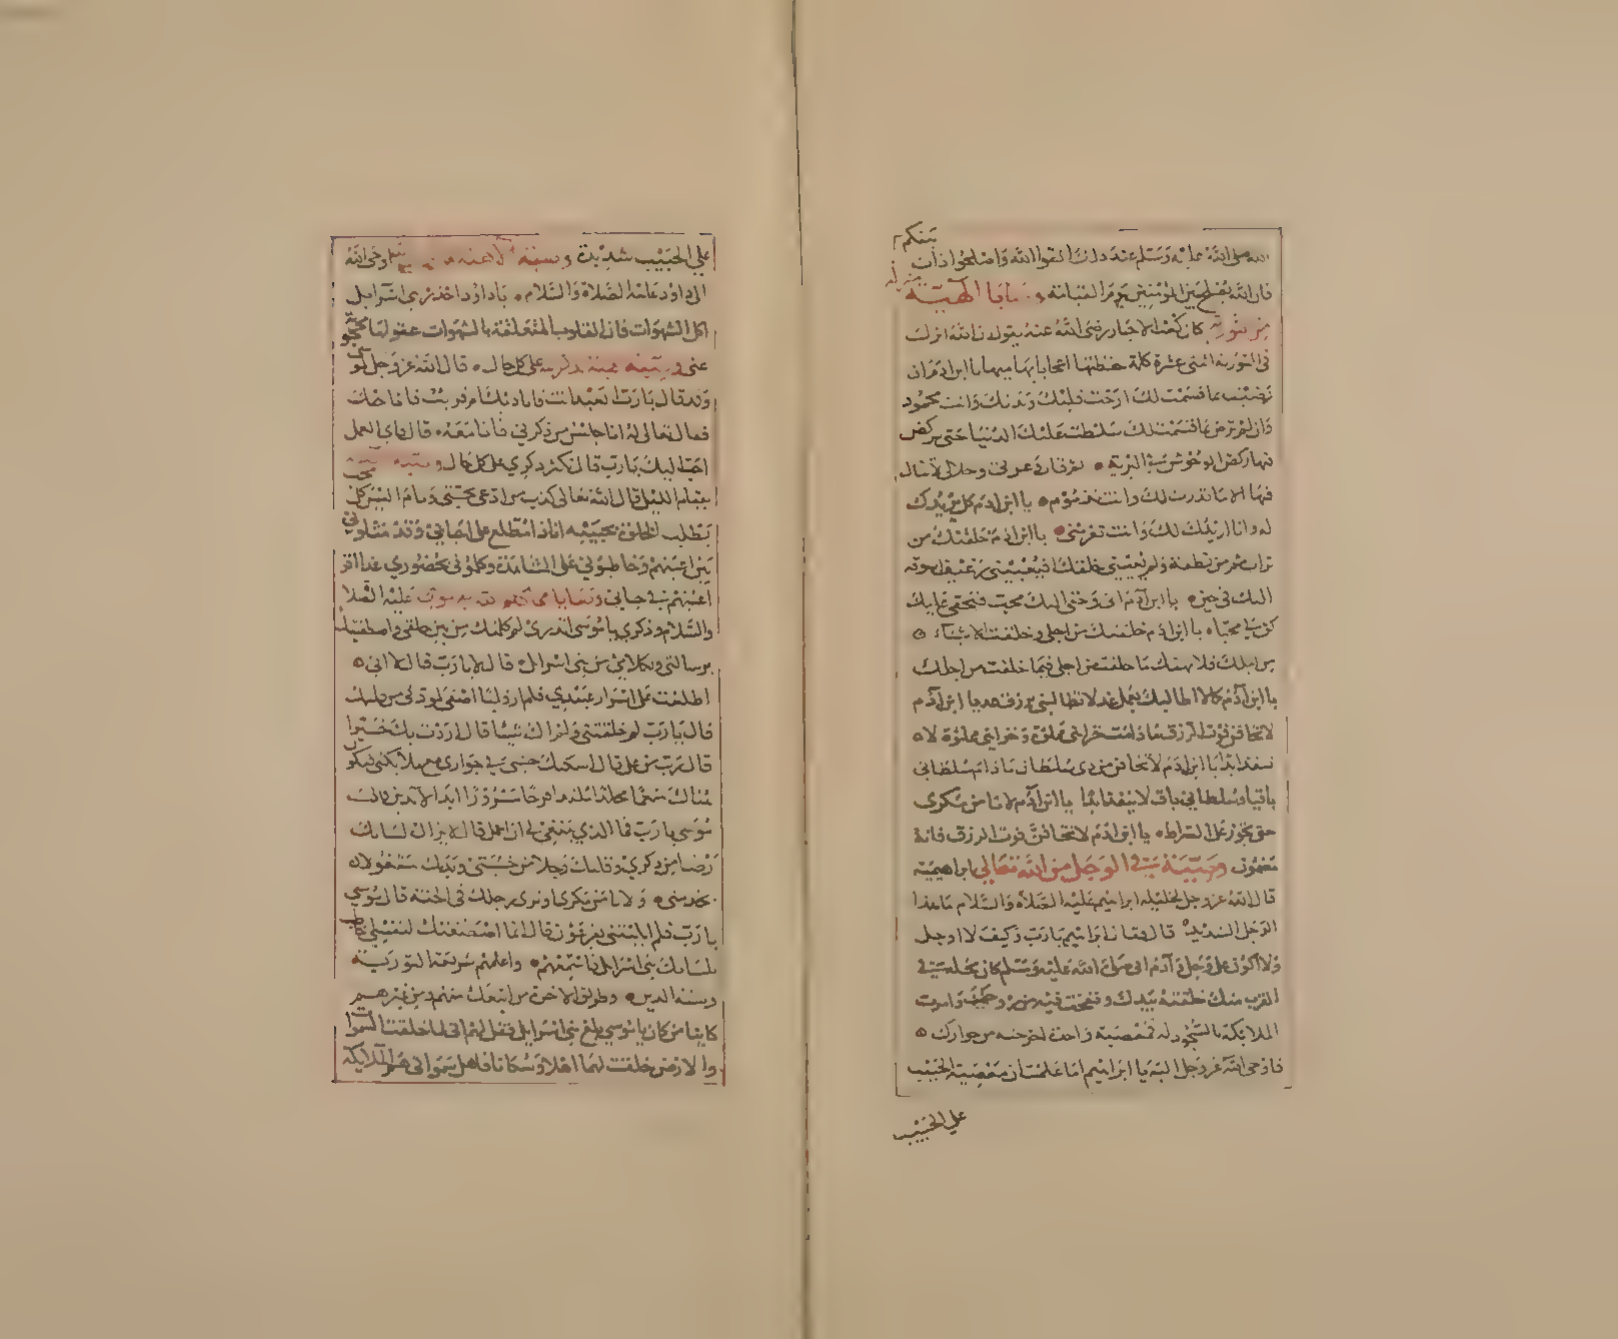 بينكم
الله صلى الله عليه وسلم عند ذلك اتقوا الله واصلحوا ذات
فان الله يصلح بين المؤمنين يوم القيامة
كان كعب الاحبار رضي الله عنه يقول ان الله انزل
في التورية اثنى عشرة كلمة يا ابن ادم ان
رضيت بما قسمت لك ارحت قلبك وبدنك وانت محمود
وان لم ترض بما قسمت لك سلطت عليك الدنيا حتى تركض
فيها ركض الوحوش في البرية وعزتي وجلالي لا تنال
فيها الا ما قدرت لك وانت مذموم يا ابن ادم كل يريدك
له وانا اريدك لك وانت تفر مني يا ابن ادم خلقتك من
تراب ثم من نطفة ولم يعييني خلقك افيعييني رغيف اسوقه
اليك في حين يا ابن آدم اني وحقي اليك محب فبحقي عليك
كن لي محبا يا ابن ادم خلقتك من اجلي وخلقت الاشياء
من اجلك فلا تهتك ما خلقت من اجلي فيما خلقت من اجلك
يا ابن آدم كما لا اطالبك بعمل غد لا تطالبني برزق غد يا ابن آدم
لا تخافن فوت الرزق ما دامت خزائني مملوة وخزائني مملوة لا
تنفد ابدا يا ابن ادم لا تخافن من ذي سلطان ما دام سلطاني
باقيا وسلطاني باق لا ينفد ابدا يا ابن آدم لا تامن مكري
حتى تجوز على الصراط يا ابن ادم لا تخافن فوت الرزق فانه
مضمون وصية في الوجل من الله تعالى ابراهيمية
قال الله عز وجل لخليله ابراهيم عليه الصلاة والسلام ما هذا
الوجل الشديد قال فقال ابراهيم يا رب وكيف لا اوجل
ولا اكون على وجل وآدم ابي صلى الله عليه وسلم كان محله في
القرب منك خلقته بيدك ونفخت فيه من روحك وامرت
الملائكة بالسجود له فبمعصية واحدة اخرجته من جوارك
فاوحى الله عز وجل اليه يا ابراهيم اما علمت ان معصية الحبيب
على الحبيب
على الحبيب شديدة اوحى الله
الى داود عليه الصلاة والسلام يا داود احذر بني اسرائيل
اكل الشهوات فان القلوب المتعلقة بالشهوات عقولها محجوبة
عني على كل حال قال الله عز وجل
وقد قال يا رب ابعيد انت فاناديك ام قريب فاناجيك
فقال تعالى له انا جليس من ذكرني فانا معه قال فاي العمل
احب اليك يا رب قال تكثر ذكري على كل حال
بقيام الليل قال الله تعالى كذب من ادعى محبتي ونام اليس كل
يطلب الخلوة بحبيبه انا ذا مطلع على احبابي وقد مثلوني
بين اعينهم وخاطبوني على المشاهدة وكلموني بحضوري غدا اقر
اعينهم في جناني عليه الصلاة
والسلام وذكرى يا موسى اتدري لم كلمتك من بين خلقي واصطفيتك
برسالتي وبكلامي من بني اسرائيل قال لا يا رب قال لاني
اطلعت على اسرار عبيدي فلم ار قلبا اصفى لمودتي من قلبك
قال يا رب لم خلقتني ولم اك شيئا قال اردت بك خيرا
قال رب من علي قال اسكنك جنتي في جواري مع ملائكتي فتكون
هناك منعما مخلدا مسرورا ابد الابدين قال
موسى يا رب فما الذي ينبغي لي ان اعمل قال لا يزال لسانك
رطبا من ذكري وقلبك وجلا من خشيتي وبدنك مشغولا
بخدمتي ولا تامن مكري او ترى رجلك في الجنة قال موسى
يا رب فلم ابليتني بفرعون قال انما اصطنعتك لنفسي
بلسانك بني اسرائيل فاسمعهم واعلمهم شريعة التورية
وسنة الدين وطريق الاخرة من اتبعك منهم ومن غيرهم
كائنا من كان يا موسى بلغ بني اسرائيل فقل لهم اني لما خلقت السموات
والارض خلقت لهما اهلا وسكانا فاهل سمواتي هم الملائكة